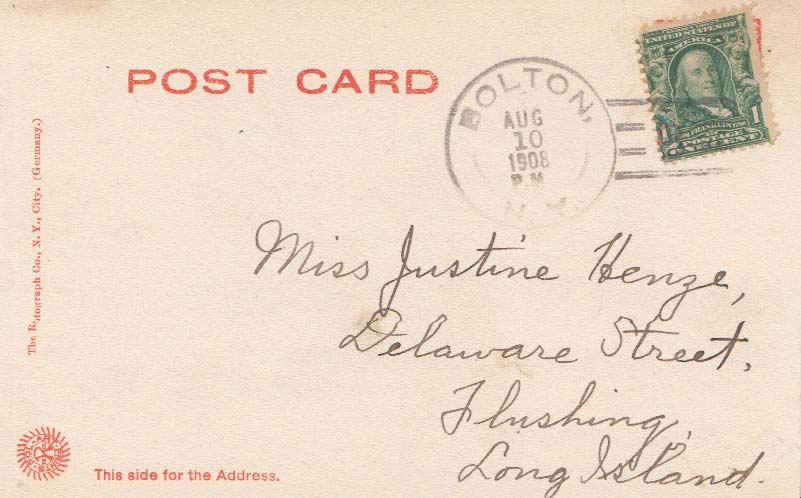 POST CARD
BOLTON,
AUG
10
1908
P.M.
N.Y.
UNITED STATES OF
AMERICA
1 1
FRANKLIN
POSTAGE
ONE CENT
The Rotograph Co., N. Y., City. (Germany.)
Miss Justine Henze,
Delaware Street,
Flushing,
Long Island.
This side for the Address.